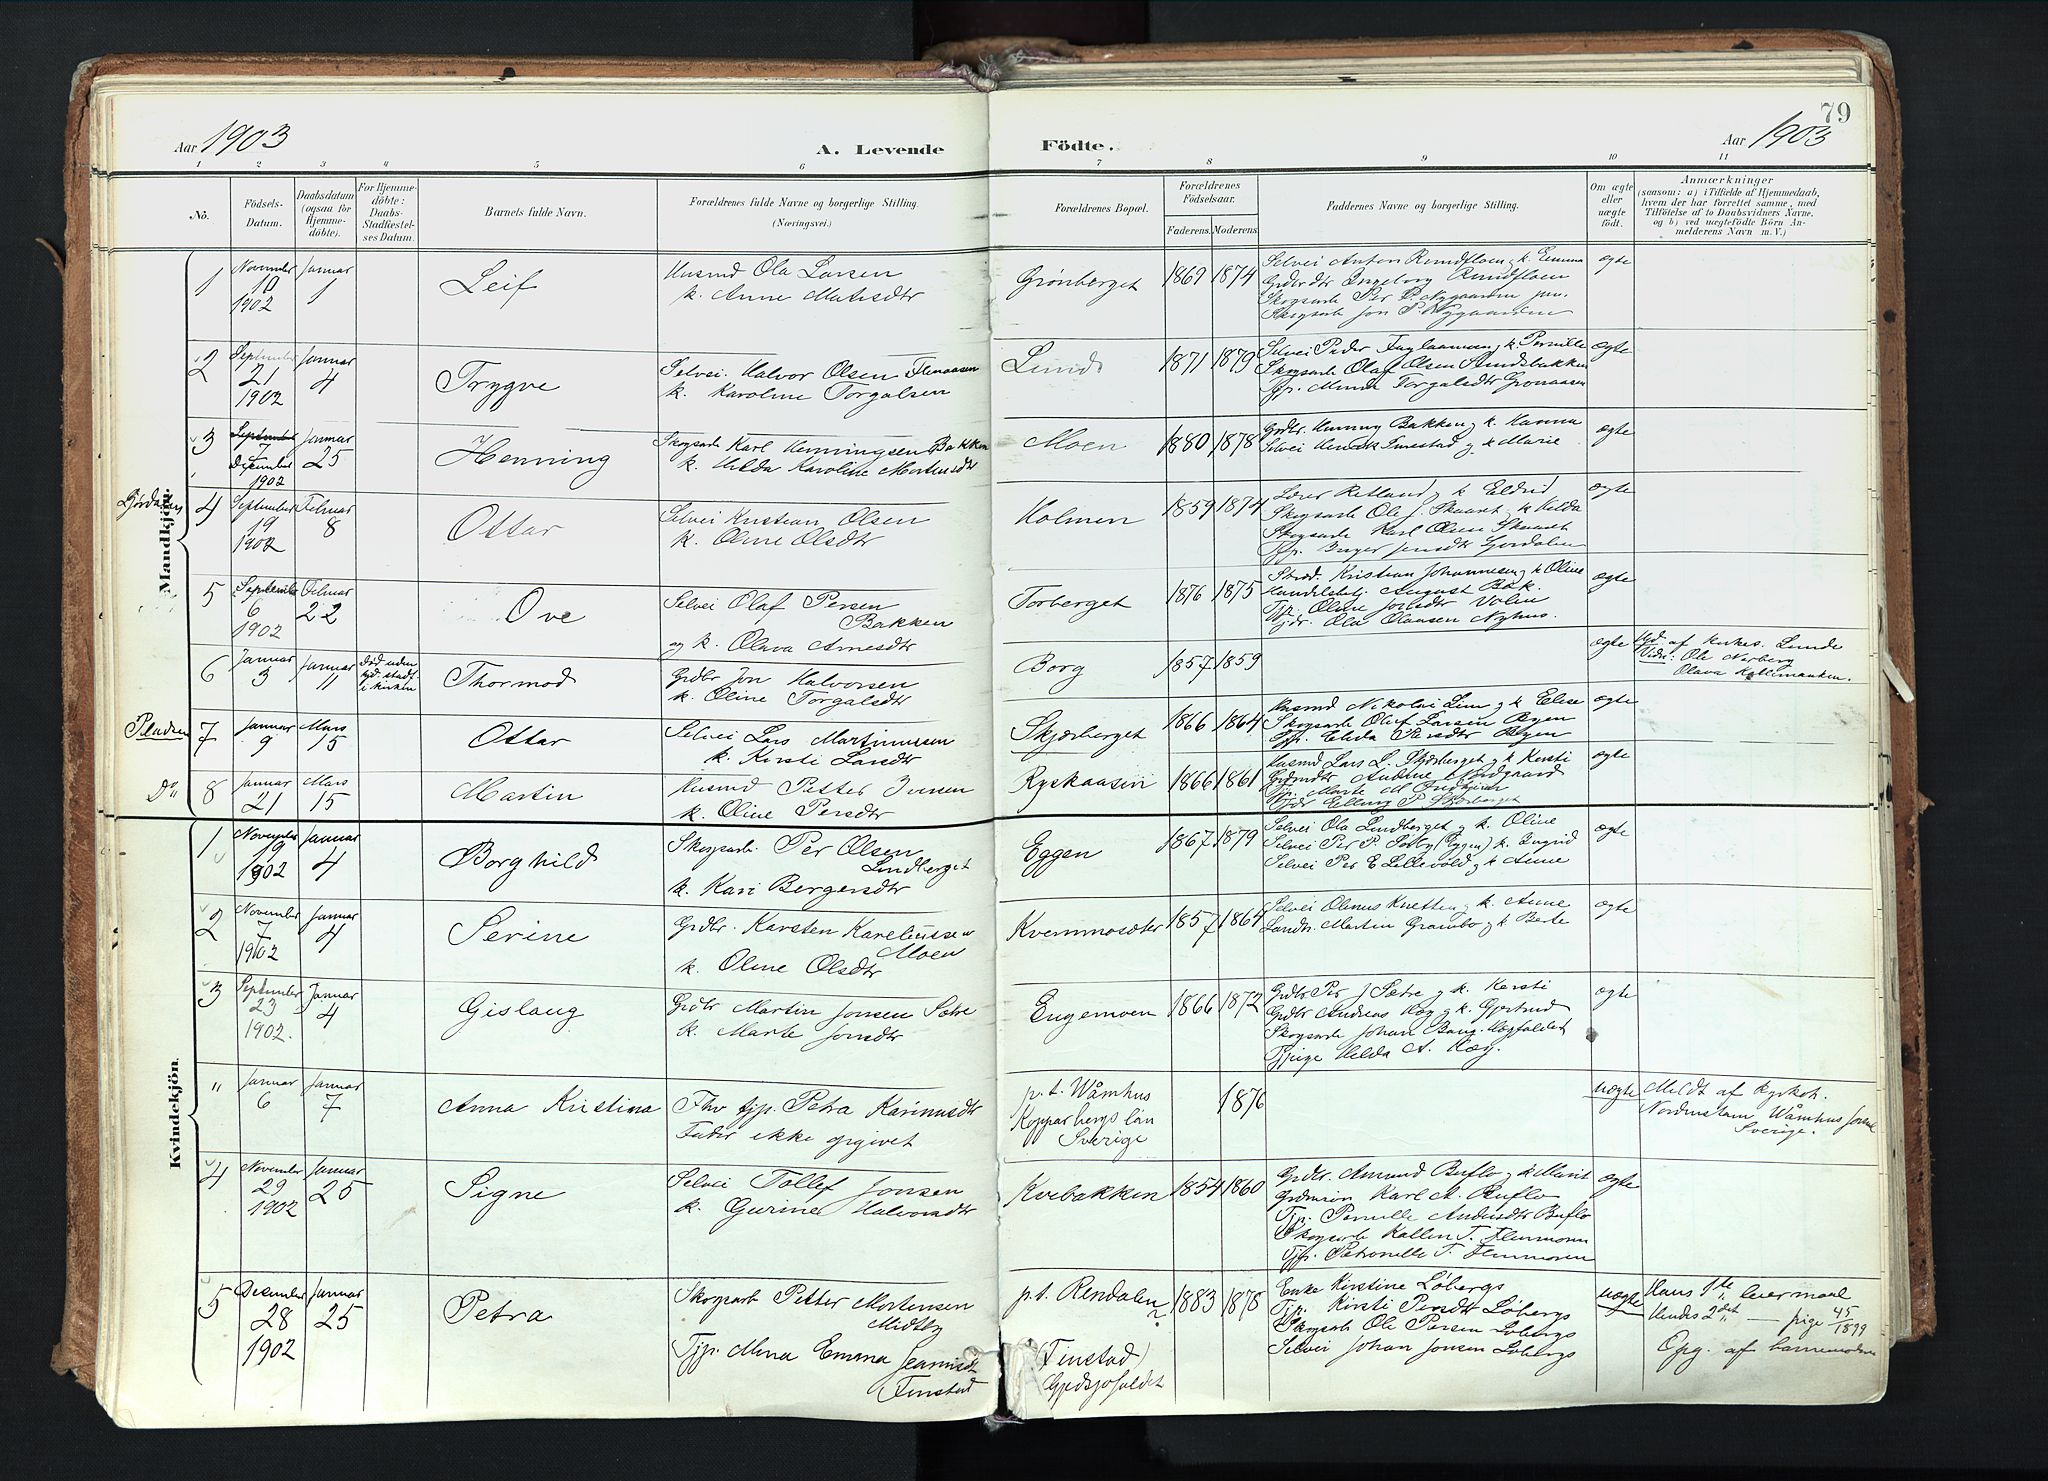 79
Aar 1903
A. Levende Födte.
Aar 1903
1 2 3 4 5 6 7 8 9 10 11
No.
Födsels-
Datum.
Daabsdatum
(ogsaa for
Hjemme-
döbte).
For Hjemme-
döbte:
Daabs-
Stadfæstel-
ses Datum.
Barnets fulde Navn.
Forældrenes fulde Navne og borgerlige Stilling.
(Næringsvei.)
Forældrenes Bopæl.
Forældrenes
Födselsaar.
Faderens. Moderens.
Faddernes Navne og borgerlige Stilling.
Om ægte
eller
uægte
födt.
Anmærkninger
(saasom: a) i Tilfælde af Hjemmedaab,
hvem der har forrettet samme, med
Tilföielse af to Daabsvidners Navne,
og b) ved uægtefödte Börn An-
melderens Navn m. V.)
Mandkjön.
1 November 10 1902 Januar 1 Leif
Husmd Ola Larsen
k. Anne Mathsdtr
Grönberget 1869 1874
Selvei Anton Rundfloen og k. Emma
Grdbrdtr Ingeborg Rundfloen
Skogsarb Per P. Nygaarden jun.
Skogsarb Jon P. Nygaarden
ægte
2 September 21 1902 Januar 4 Trygve
Selvei. Halvor Olsen Flenaasen
k. Karoline Torgalsen
Lund 1871 1879
Selvei Peder og k. Pernille
Skogsarb Olaf Olsen Strandsbakken
Tjp. Minda Torgalsdtr Grønaasen
ægte
3 September 7 December 1902 Januar 25 Henning
Skogsarb Karl Henningsen Bakken
k. Hilda Karoline Mortensdtr
Moen 1880 1878
Grdbr. Henning Bakken og k. Hanna
Selvei Henrik Finestad og k Marie
ægte
4 September 19 1902 Februar 8 Ottar
Selvei Kristian Olsen
k. Oline Olsdtr
Holmen 1859 1874
Lærer Retland og k Eldrid
Skogsarb Ole J. Skaaret og k Hilda
Skogsarb Karl Olsen Skaaret
Tjp. Inger Jensdtr Jordalen
ægte
5 September 6 1902 Februar 22 Ove
Selvei Olaf Persen
Bakken
og k. Olava Arnesdtr
Torberget 1876 1875
Kristian Johannesen og k Oline
Handelsbetj. August Bak.
Tjp. Oline Jonsdtr Volen
Tjdr. Ola Olaasen Nyhus.
ægte
6 Januar 3 Januar 11
död uden
stadf.
i kirken
Thormod
Grdbr Jon Halvorsen
k. Oline Torgalsdtr
Borg 1857 1859
ægte
af kirkes. Lunde
Vidn: Ole Norberg
Olava Kollemanken.
Pladsen 7 Januar 9 Mars 15 Ottar
Selvei Lars Martinussen
k. Kersti Larsdtr
Skjærberget 1866 1864
Husmd Nikolai Linn og k Elise
Skogsarb Oluf Larsen Byen
Tjp. Elida Persdtr Byen
ægte
Do" 8 Januar 21 Mars 15 Martin
Husmd Petter Jensen
k. Oline Persdtr
Ryskaasen 1866 1861
Husmd Lars L. Skjærberget og k Kersti
Grdmdtr Andrine Nordgaard
Tjp. Marte M
Tjdr Elling P Skjærberget
ægte
Kvindekjön.
1 November 19 1902 Januar 4 Borghild
Skogsarb. Per Olsen
Lindberget
k. Kari Bergersdtr
Eggen 1867 1879
Selvei Ola Lindberget og k. Oline
Selvei Per P. Sætby (Eggen) k. Ingrid
Selvei Per E Lillevold og k Anne
ægte
2 November 7 1902 Januar 4 Serine
Grdbr. Karsten Kareliussen
Moen
k. Oline Olsdtr
Kvemmosæter 1857 1864
Selvei Olenus Kvetten og k. Anne
Landh. Martin Grambo og k Berte
ægte
3 September 23 1902. Januar 4 Gislaug
Grdbr Martin Jonsen Sætre
k. Marte Jonsdtr
Engemoen 1866 1872
Grdbr Per J Sætre og k. Kersti
Grdbr Andreas Hæg og k. Gjertrud
Skogsarb Johan Bang. Vægfaldet
Tjpige Hilda A. Hæg.
ægte
" Januar 6 Januar 7 Anna Kristina
Fhv tjp. Petra Karinusdtr
Fader ikke opgivet
p. t. Wåmhus
Kopparbergs län
Sverige
1876
uægte
Meldt af kyrkoh.
Nordenstam Wåmhus förs.
Sverige.
4 November 29 1902 Januar 25 Signe
Selvei Tollef Jonsen
k. Gurine Halvorsdtr
Kvebakken 1854 1860
Grdbr. Amund Buflo og k Marit
Grdmsøn Karl A. Buflo
Tjp. Pernille Andersdtr Buflo
Skogsarb Kallen T. Flenmoen
Tjp. Petronelle T. Flenmoen
ægte
5 December 28 1902 Januar 25 Petra
Skogsarb Petter Mortensen
Midtby
Tjp. Mina Emma Jeanusdtr
Finstad
p.t. Rendalen
(Finstad)
1883 1878
Enke Kirstine Løbergs
Tjp. Kirsti Persdtr Løbergs
Skogsarb Ole Persen Løbergs
Selvei Johan Jonsen Løbergs
uægte
Hans 1ste leiermaal
Hendes 2det — pige 45/1899
Opg. af barnemoderen